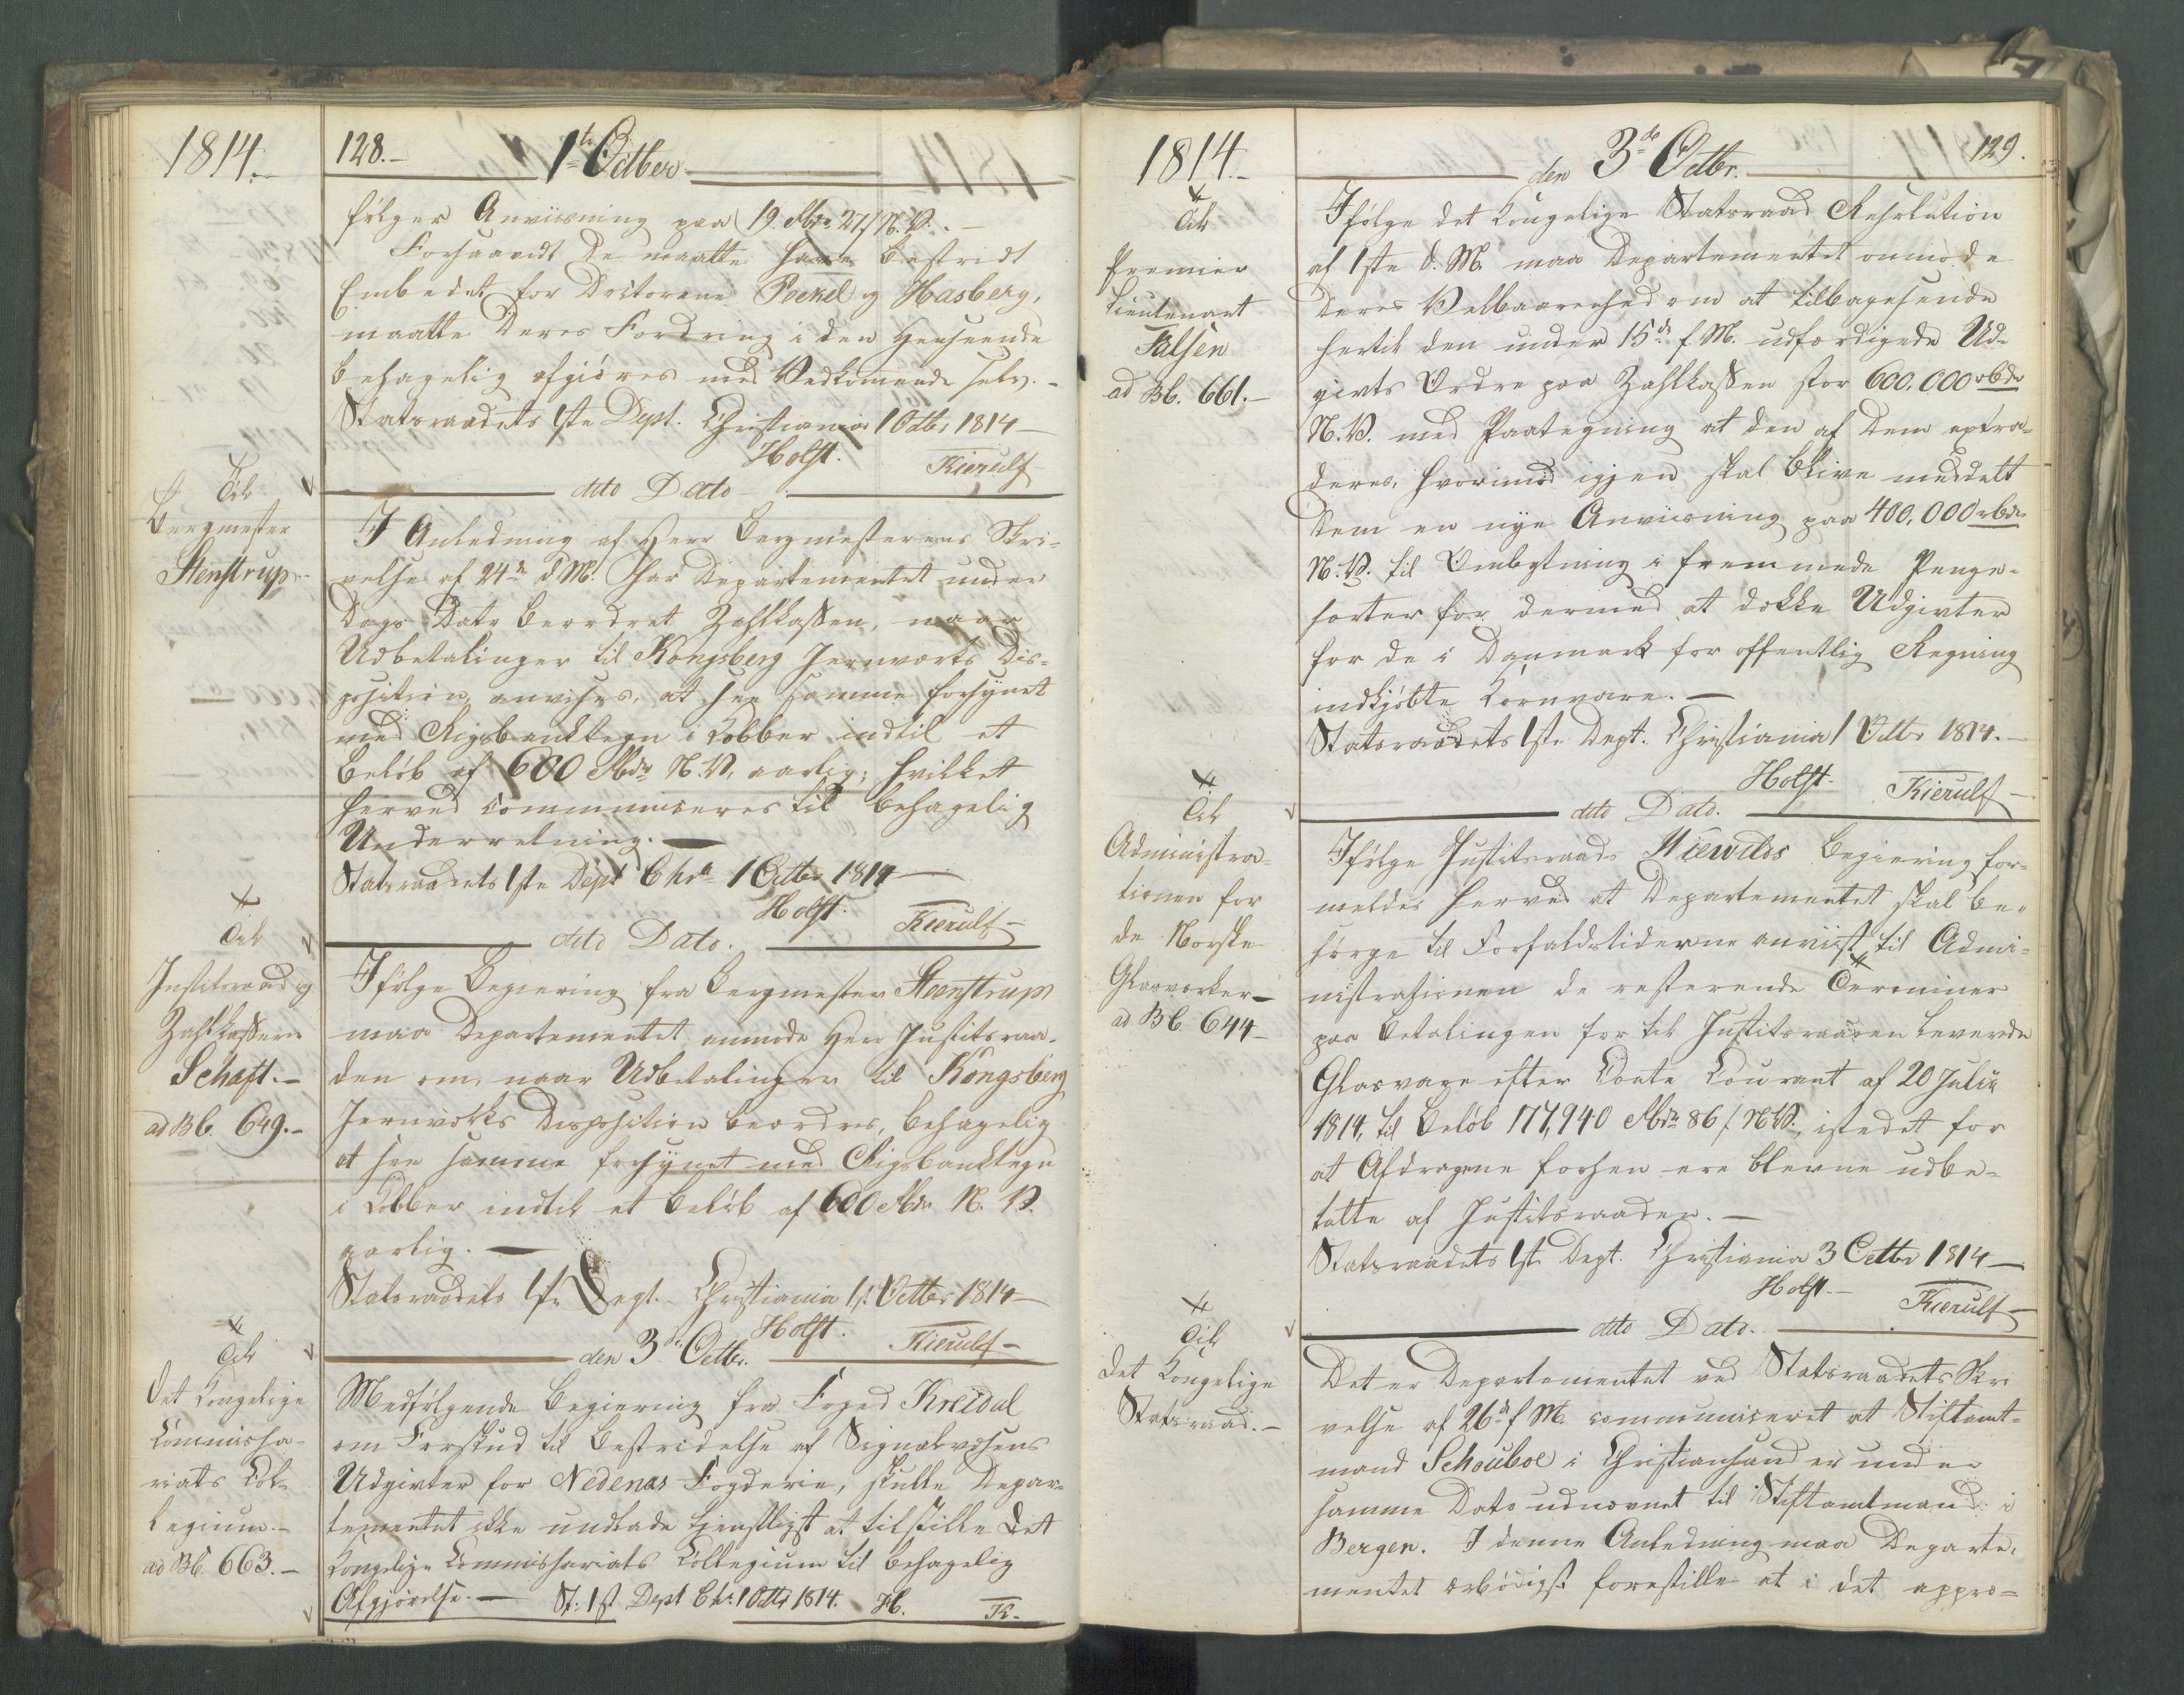 1814.
128.
1ste Octber
følger Anviisning paa 19 Rbd 27 s N.V.
Forsaavidt De maatte have bestridt
Embedet for Doctorene Peckel og Hasberg,
maatte Deres Fordring i den Henseende
behagelig afgiøres med Vedkommende selv.
Statsraadets 1ste Dept. Christiania 1 Octbr 1814
Holst. Kierulf
dito Dato
Til
Bergmester
Stenstrup
I Anledning af Herr Bergmesterens Skri-
velse af 24de d. M. har Departementet under
Dags Dato beordret Zahlkassen, naar
Udbetalinger til Kongsberg Jernværks Dis-
position anvises, at see samme forsynet
med Rigsbanktegn i Kobber indtil et
Beløb af 600 Rbdr N.V. aarlig; hvilket
herved communiceres til behagelig
Underretning.
Statsraadets 1ste Dept Chra 1 Octbr 1814
Holst. Kierulf
dito Dato.
Til
Justitsraad og
Zahlkasserer
Schaft.
ad Bb. 649.
Ifølge Begiering fra Bergmester Steenstrup
maa Departementet anmode Herr Justitsraa-
den om, naar Udbetalinger til Kongsberg
Jernværks Disposition beordres, behagelig
at see samme forsynet med Rigsbanktegn
i Kobber indtil et Beløb af 600 Rbdr N. V.
aarlig.
Statsraadets 1ste Dept. Christiania 1st Octbr 1814
Holst. Kierulf
den 3de Octbr.
Til
Det Kongelige
Commissa-
riats Col-
legium.
ad Bb. 663.
Medfølgende Begiering fra Foged Kreidal
om Forskud til Bestridelse af Signalvæsens
Udgivter for Nedenæs Fogderie, skulle Depar-
tementet ikke undlade tienstligst at tilstille Det
Kongelige Commissariats Collegium til behagelig
Afgjørelse. St: 1st Dept Chr. 1 Octbr 1814. H. K.
1814.
den 3de Octbr.
129.
Til
Premier
Lieutenant
Falsen
ad Bb. 661.
Ifølge det Kongelige Statsraad Resolution
af 1ste d. M. maa Departementet anmode
Deres Velbaarenhed om at tilbagesende
hertil den under 15de f. M. udfærdigede Ud-
givts Ordre paa Zahlkassen stor 600,000 rbdr
N.V. med Paategning at den af Dem extra-
deres, hvorimod igjen skal blive meddelt
Dem en nye Anviisning paa 400,000 rbdr
N.V. til Ombytning i fremmede Penge-
sorter for dermed at dække Udgivter
for de i Danmark for offentlig Regning
indkjøbte Kornvare.
Statsraadets 1ste Dept. Christiania 1 Octbr 1814.
Holst. Kierulf
dito Dato.
Til
Administra-
tionen for
de Norske
Glasværker
ad Bb. 644
Ifølge Justitsraad Begiering for-
meldes herved at Departementet skal be-
sørge til Forfaldstiderne anviist til Admi-
nistrationen de resterende Terminer
paa Betalingen for til Justitsraaden leverede
Glasvare efter Conto Courant af 20 Julii
1814, til Beløb 177,940 Rbdr 86 s. N.V., istedet for
at Afdragene forhen ere blevne udbe-
talte af Justitsraaden.
Statsraadets 1ste Dept. Christiania 3 Octbr 1814
Holst. Kierulf
dito Dato.
Til
Det Kongelige
Statsraad.
Det er Departementet ved Statsraadets Skri
velse af 26de f. M. communiceret at Stiftamt-
mand Schouboe i Christiansand er under
samme Dato udnævnt til Stiftamtmand i
Bergen. I denne Anledning maa Departe-
mentet ærbødigst forestille at i det appro-